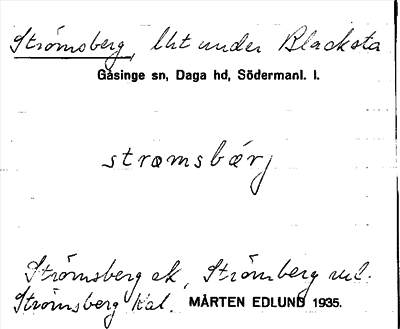 Strömsberg, lht under Blacksta
Gåsinge sn, Daga hd, Södermanl. l.
strømsbǽrj
Strömsberg ek, Strömberg vul.
Strömsberg Kat. MÅRTEN EDLUND 1935.